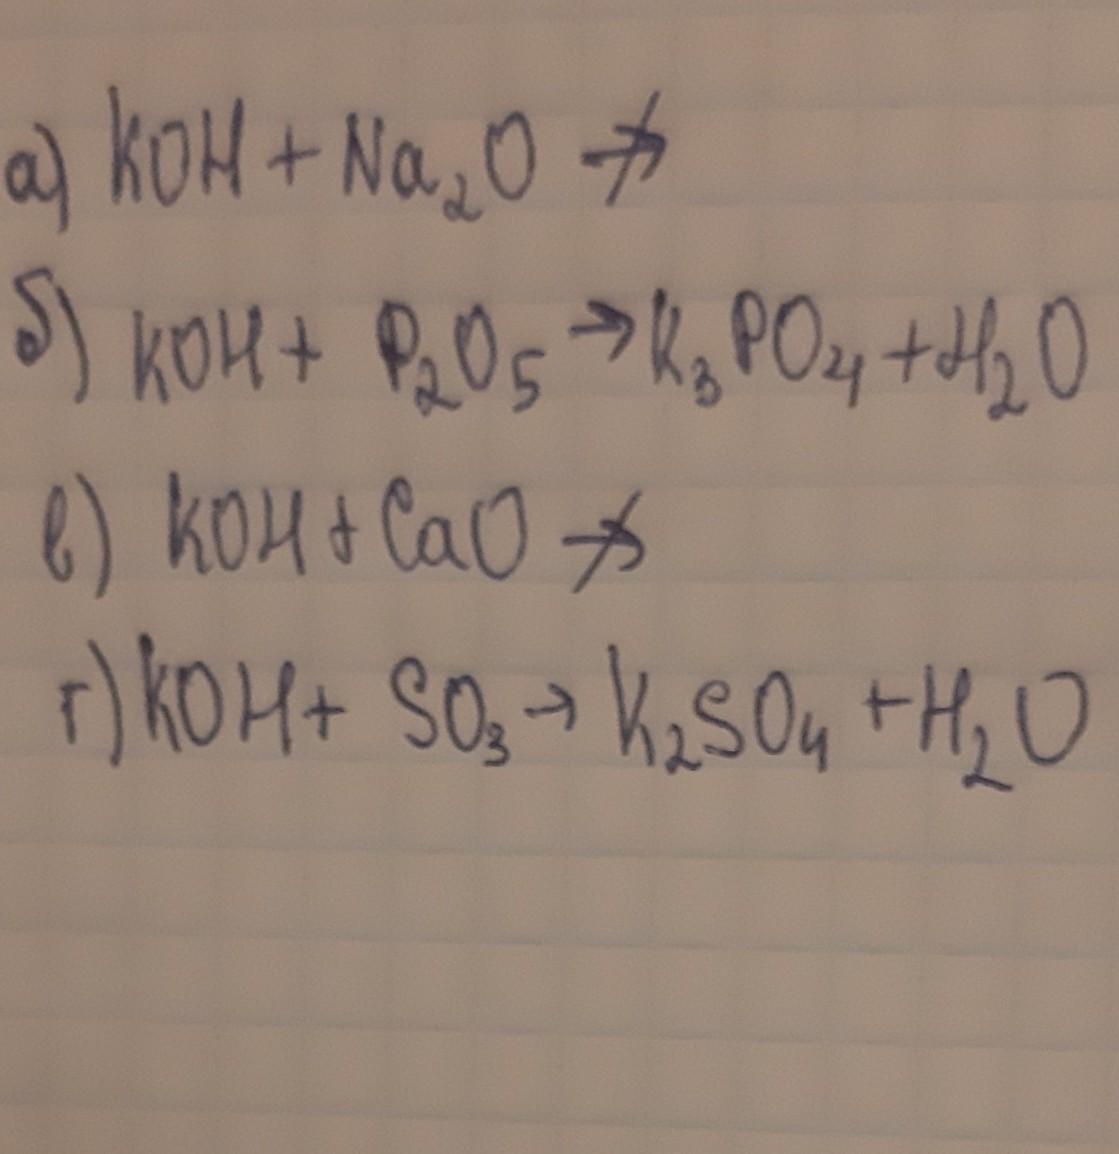 а) KOH + Na₂O ↛
б) KOH + P₂O₅ → K₃PO₄ + H₂O
в) KOH + CaO ↛
г) KOH + SO₃ → K₂SO₄ + H₂O